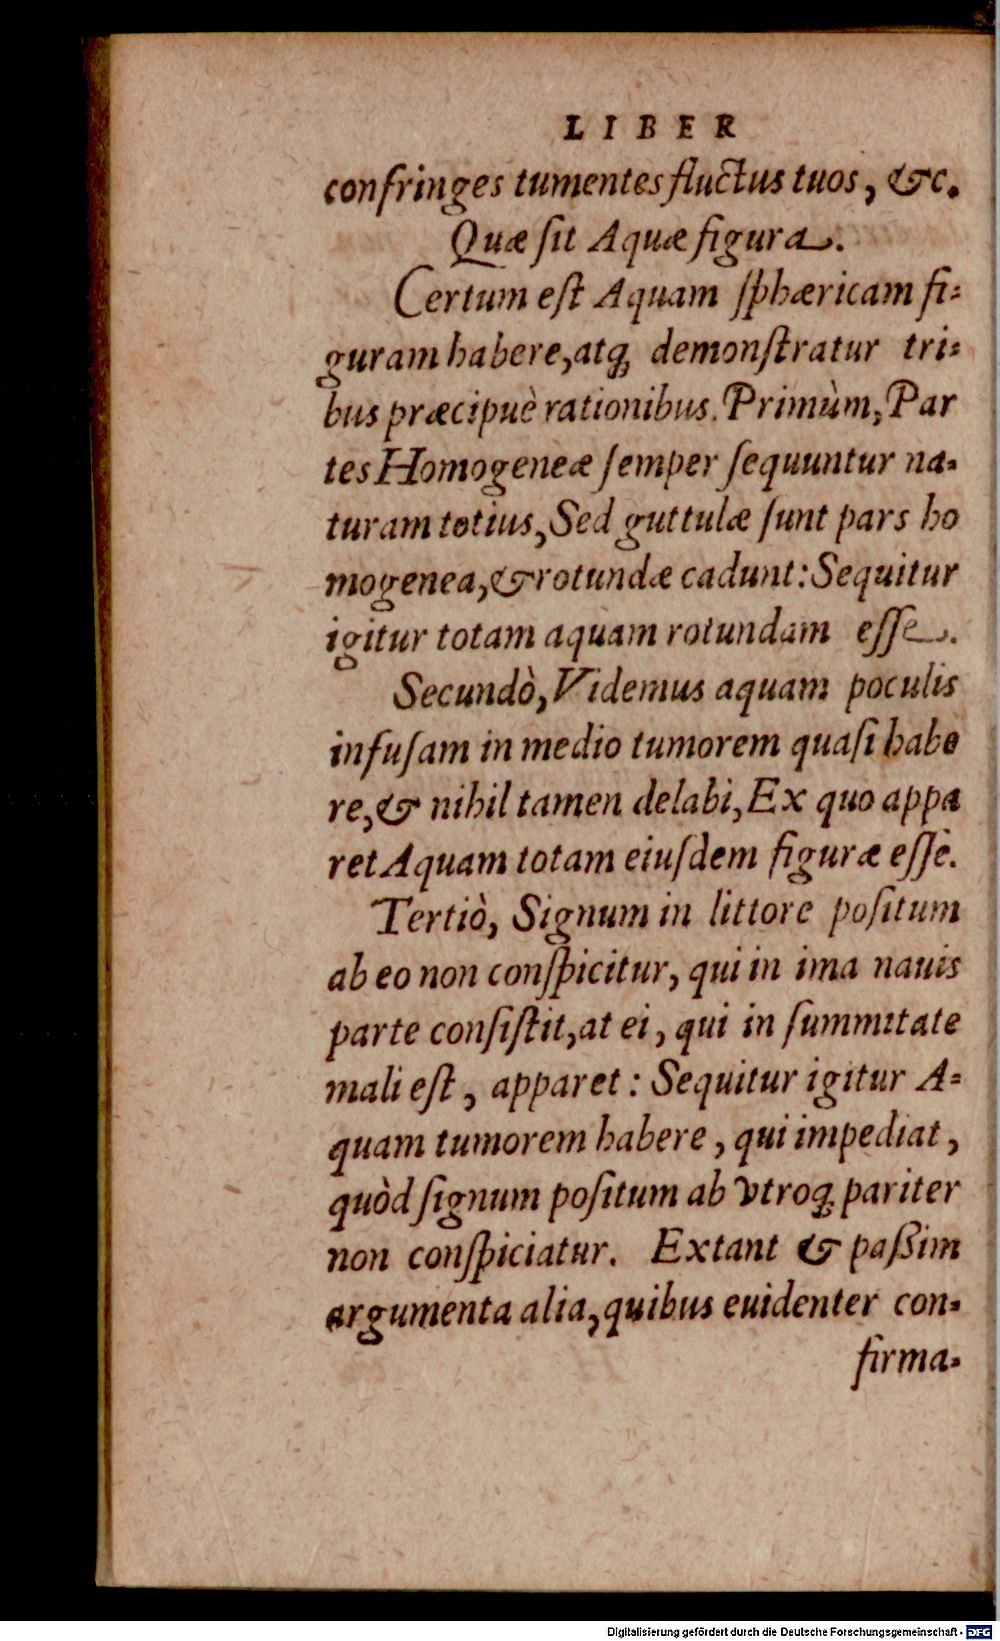 LIBER
confringes tumentes fluctus tuos, &c.
Quæ ſit Aquæ figura.
Certum eſt Aquam ſphæricam fi-
guram habere, atq; demonſtratur tri-
bus præcipuè rationibus. Primùm, Par
tes Homogeneæ ſemper ſequuntur na-
turam totius, Sed guttulæ ſunt pars ho
mogenea, & rotundæ cadunt: Sequitur
igitur totam aquam rotundam eſſe.
Secundò, Videmus aquam poculis
infuſam in medio tumorem quaſi habe
re, & nihil tamen delabi, Ex quo appa
ret Aquam totam eiuſdem figuræ eſſe.
Tertiò, Signum in littore poſitum
ab eo non conſpicitur, qui in ima nauis
parte conſiſtit, at ei, qui in ſummitate
mali eſt, apparet: Sequitur igitur A-
quam tumorem habere, qui impediat,
quòd ſignum poſitum ab vtroq; pariter
non conſpiciatur. Extant & paßim
argumenta alia, quibus euidenter con-
firma-
Digitalisierung gefördert durch die Deutsche Forschungsgemeinschaft - DFG